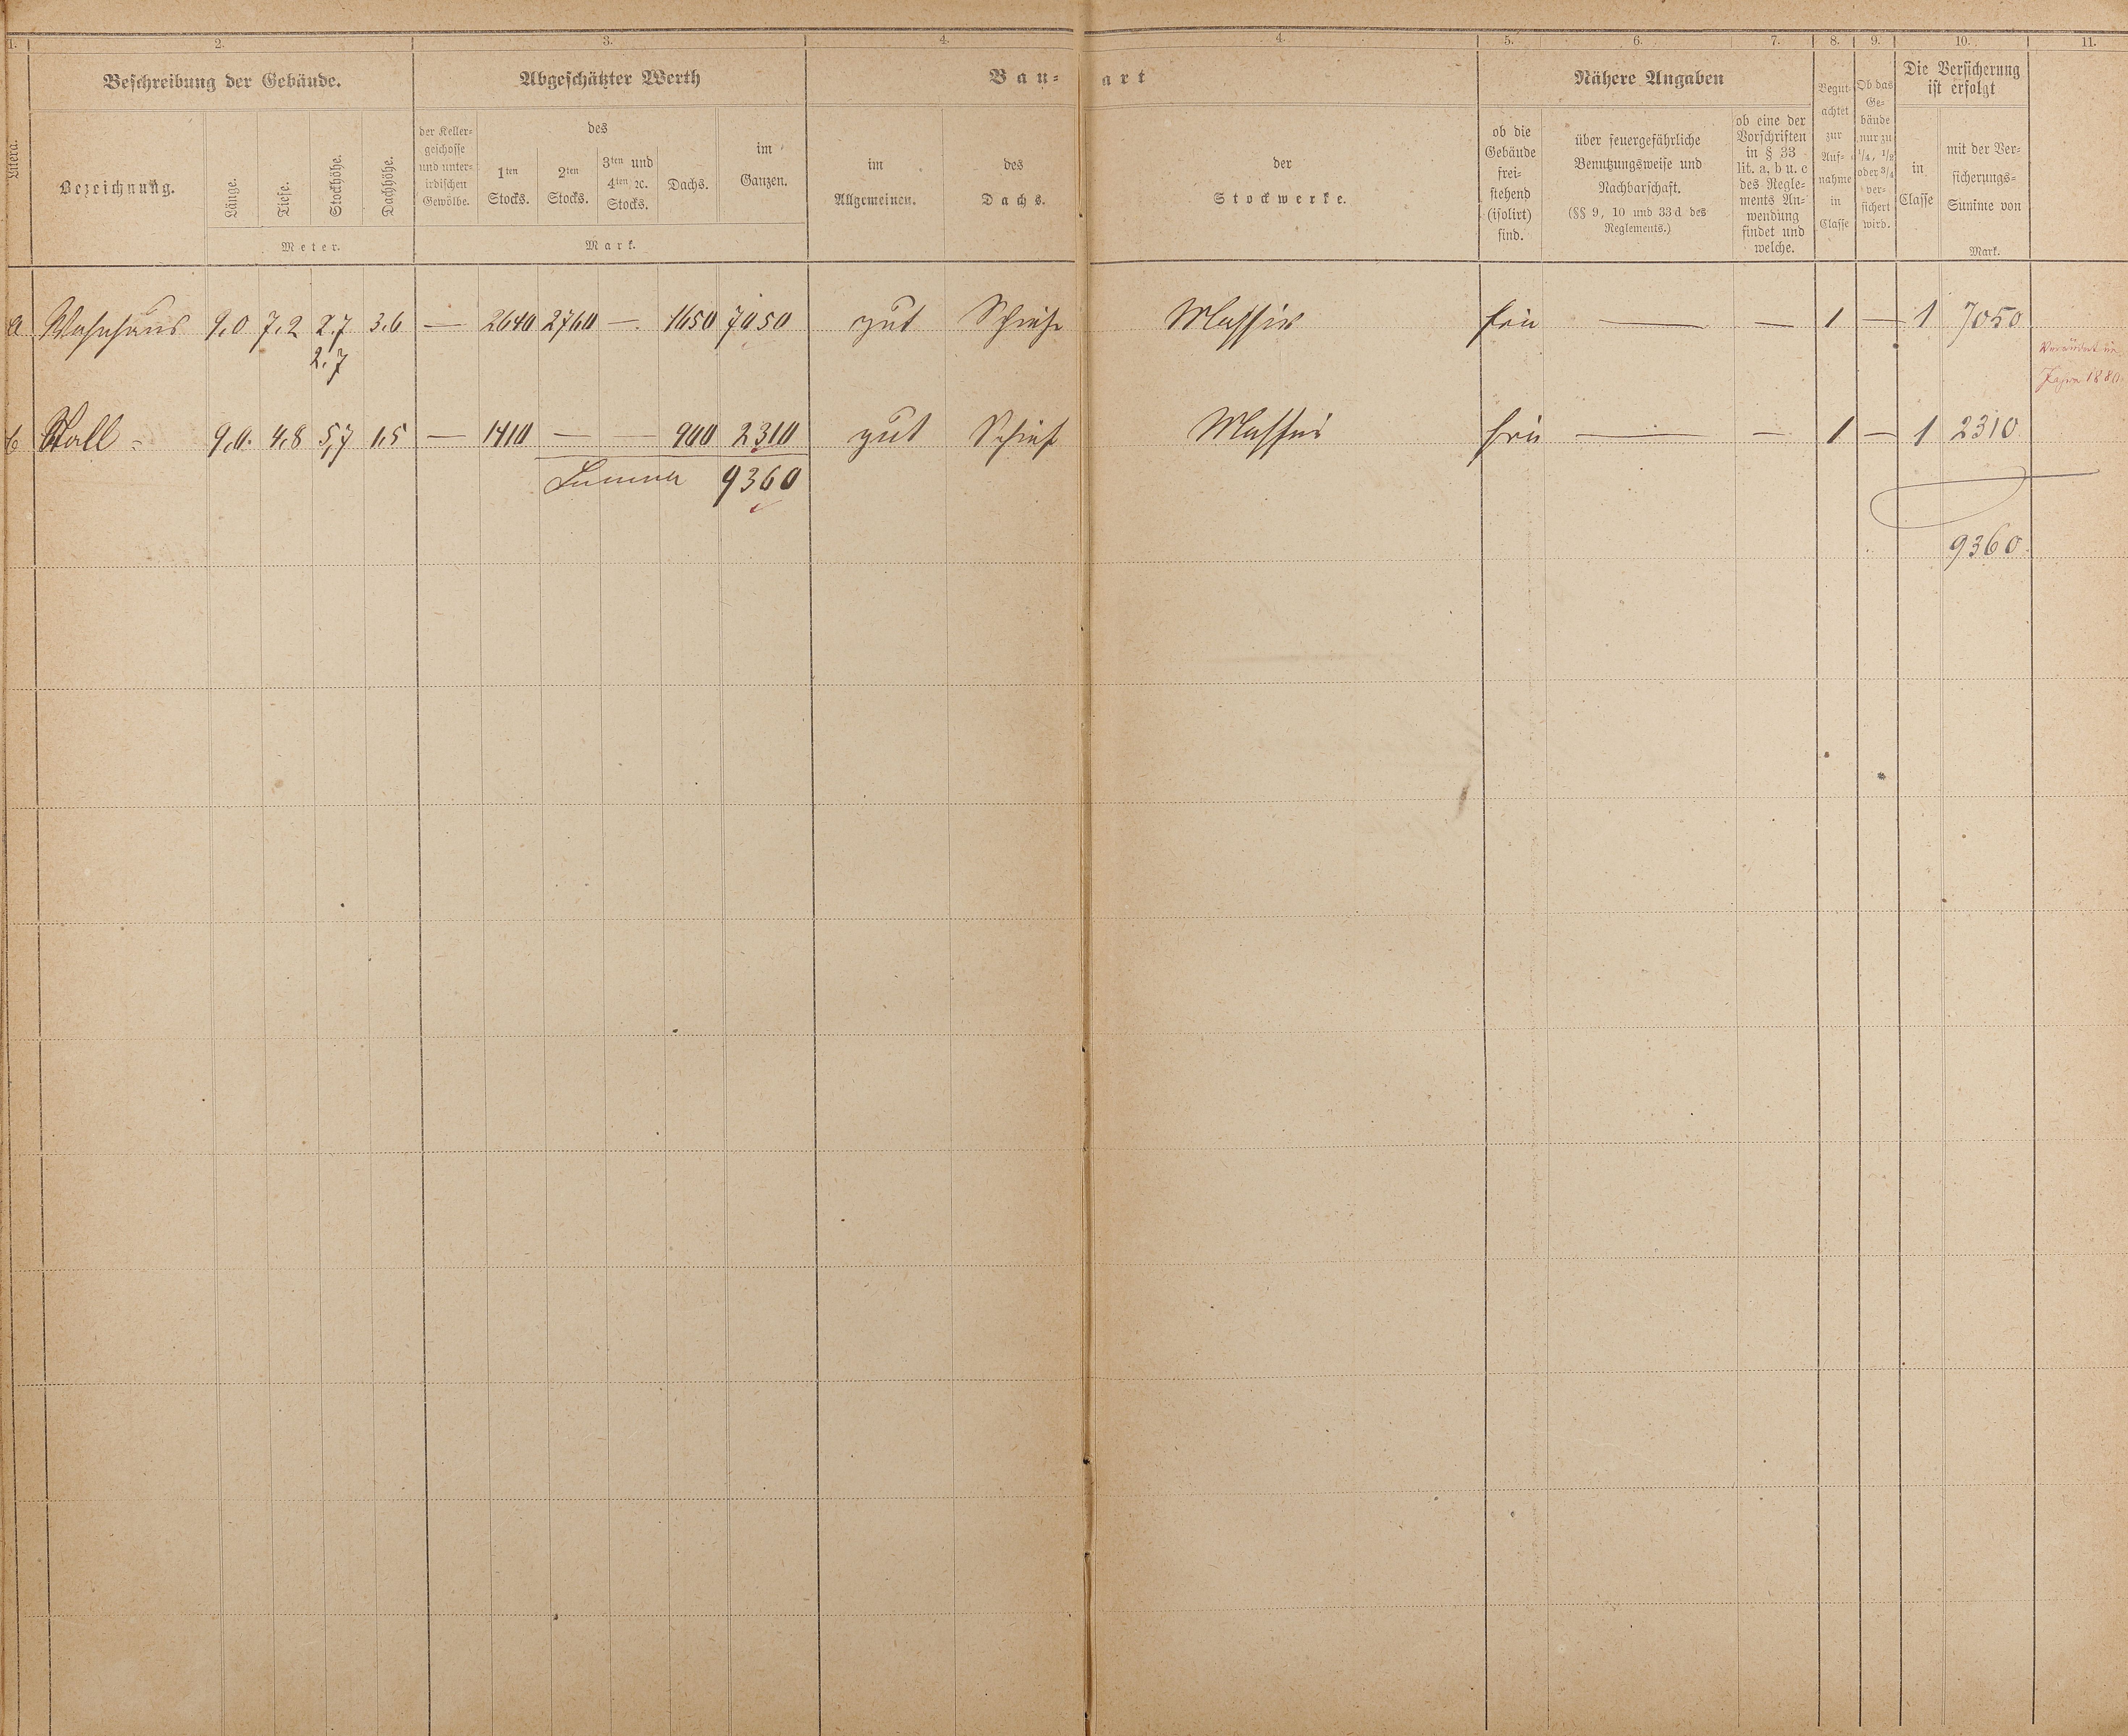 1. 2. 3. 4. 4. 5. 6. 7. 8. 9. 10. 11.
Litera.
Beschreibung der Gebäude.
Bezeichnung.
Länge.
Tiefe.
Stockhöhe.
Dachhöhe.
Meter.
Abgeschätzter Werth
der Keller-
geschosse
und unter-
irdischen
Gewölbe.
des
1ten
Stocks.
2ten
Stocks.
3ten und
4ten ꝛc.
Stocks.
Dachs.
im
Ganzen.
Mark.
Bau-
art
im
Allgemeinen.
des
Dachs.
der
Stockwerke.
Nähere Angaben
ob die
Gebäude
frei-
stehend
(isolirt)
sind.
über feuergefährliche
Benutzungsweise und
Nachbarschaft.
(§§ 9, 10 und 33 d des
Reglements.)
ob eine der
Vorschriften
in § 33
lit. a, b u. c
des Regle-
ments An-
wendung
findet und
welche.
Begut-
achtet
zur
Auf-
nahme
in
Classe
Ob das
Ge-
bände
nur zu
1/4, 1/2
oder 3/4
ver-
sichert
wird.
Die Versicherung
ist erfolgt
in
Classe
mit der Ver-
sicherungs-
Summe von
Mark.
a Wohnhaus 9,0 7,2 2,7 3,6 — 2640 2760 — 1650 7050 gut Schiefer Massiv frei — — 1 — 1 7050
2,7
Verändert im
Jahre 1880.
b Stall 9,0 4,8 5,7 1,5 — 1410 — — 900 2310 gut Schief Massiv frei — — 1 — 1 2310
Summa 9360
9360